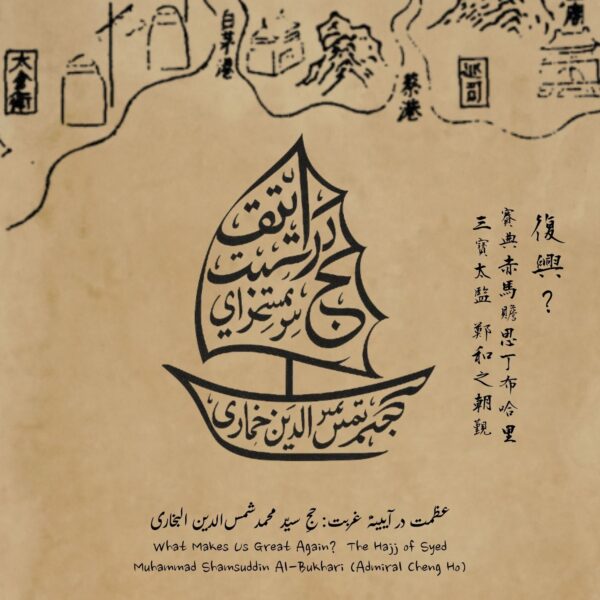 太倉衛
白茅港
蔡港
巡司
廟
復興？
賽典赤馬贍思丁布哈里
三寶太監 鄭和之朝覲
حج
شمس الدین
عظمت در آیینهٔ غربت: حج سیّد محمد شمس الدین البخاری
What Makes Us Great Again? The Hajj of Syed
Muhammad Shamsuddin Al-Bukhari (Admiral Cheng Ho)